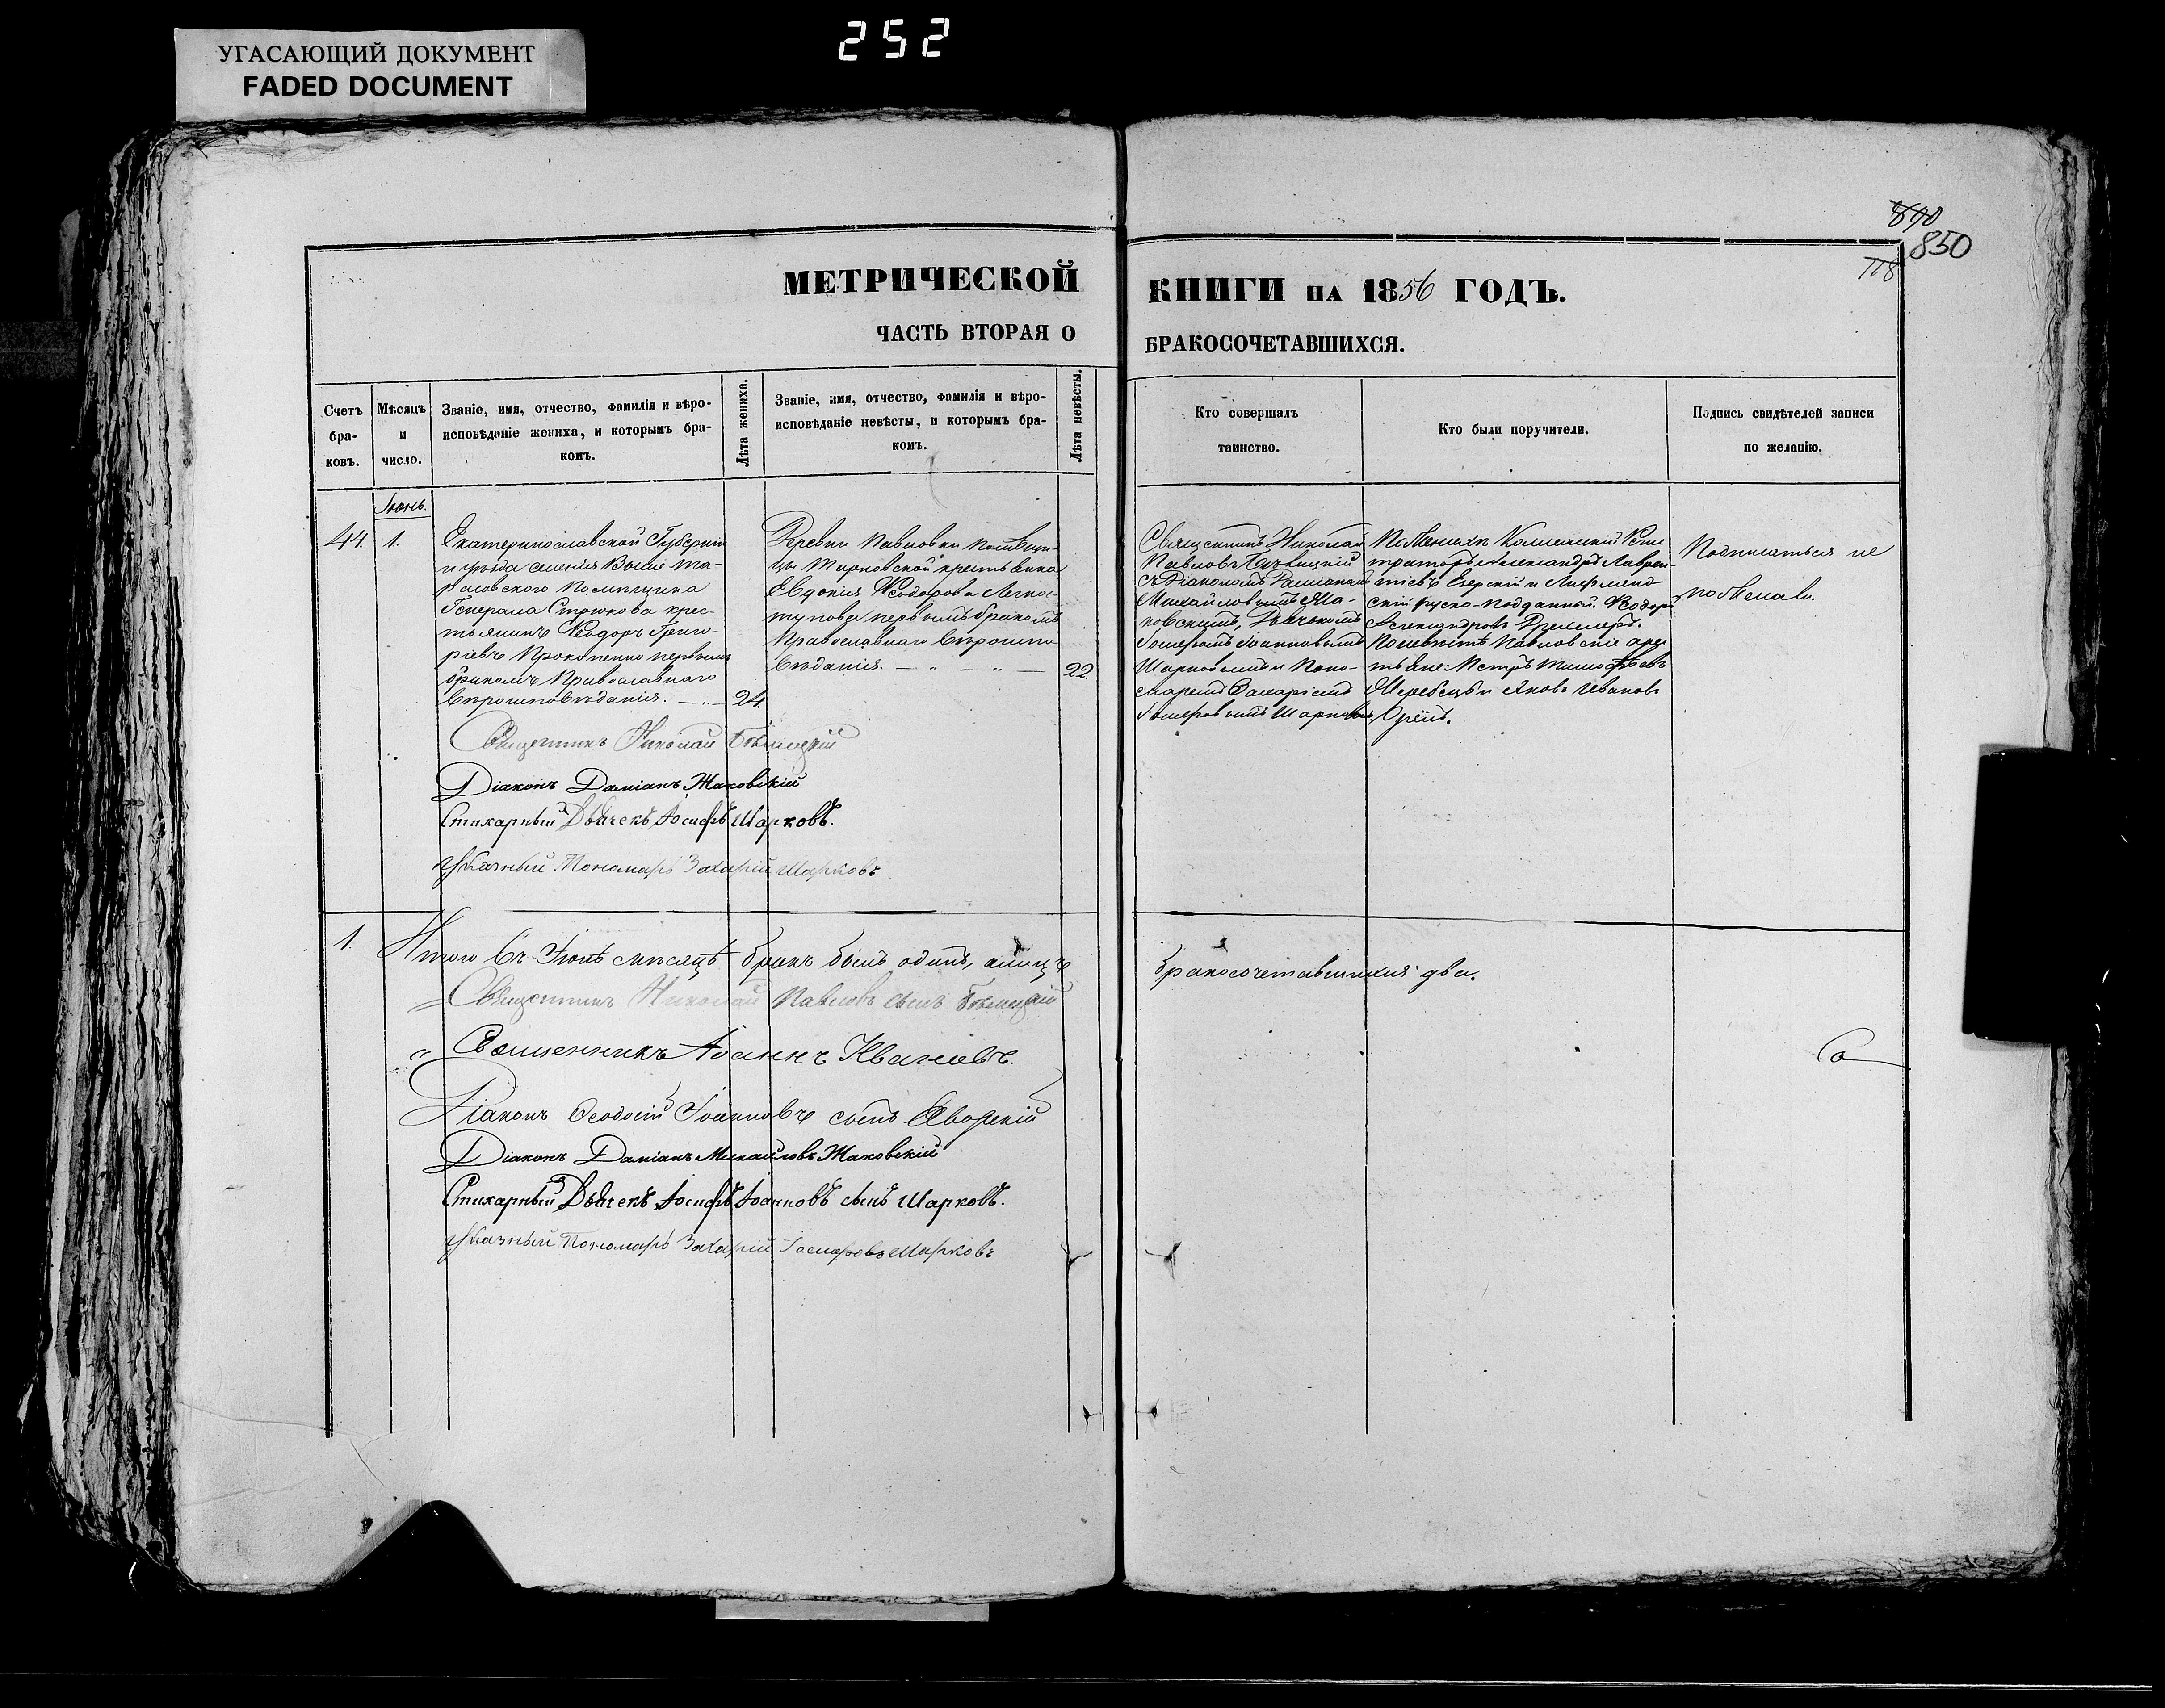 УГАСАЮЩИЙ ДОКУМЕНТ
FADED DOCUMENT
252
890
850
718
МЕТРИЧЕСКОЙ КНИГИ НА 1856 ГОДЪ.
ЧАСТЬ ВТОРАЯ О БРАКОСОЧЕТАВШИХСЯ.
Счетъ
бра-
ковъ.
Мѣсяцъ
и
число.
Званіе, имя, отчество, фамилія и вѣро-
исповѣданіе жениха, и которымъ бра-
комъ.
Лѣта жениха.
Званіе, имя, отчество, фамилія и вѣро-
исповѣданіе невѣсты, и которымъ бра-
комъ.
Лѣта невѣсты.
Кто совершалъ
таинство.
Кто были поручители.
Подпись свидѣтелей записи
по желанію.
Іюнь.
44.
1.
Екатеринославской Губерніи
и уѣзда селенія Выше Та-
расовского Помѣщика
Генерала Стрюкова крес-
тьянинъ Ѳеодоръ Григо-
ріевъ Прокопенко первымъ
бракомъ Православнаго
Вѣроисповѣданія.
24
Деревни Павловки помѣщи-
цы Марковской крестьянка
Евдокія Ѳеодорова
первымъ бракомъ
Православнаго Вѣроиспо-
вѣданія.
22
Священникъ Николай
Павловъ
съ Діакономъ Даміаномъ
Михайловымъ Жа-
ковскимъ, Дьячкомъ
Іосифомъ Іоанновымъ
Шарковымъ и Поно-
маремъ Захаріемъ
Іосифовымъ Шарковымъ
По Женихѣ Коллежскій Реги-
страторъ Александръ Лаврен-
тіевъ Езерскій и
русско-подданный Ѳеодоръ
Александровъ
По невѣстѣ Павловскіе крес-
тьяне: Петръ Тимофѣевъ
Жеребецъ и Яковъ Ивановъ
Подписаться не
пожелали.
Священникъ Николай
Діаконъ Даміанъ Жаковскій
Стихарный Дьячекъ Іосифъ Шарковъ.
Указный Пономарь Захарій Шарковъ
1.
Итого въ Іюнѣ мѣсяцѣ бракъ былъ одинъ, а лицъ бракосочетавшихся два.
Священникъ Николай Павловъ сынъ
Священникъ Іоаннъ Ивановъ.
Діаконъ Ѳеодосій Іоанновъ сынъ Яворскій
Діаконъ Даміанъ Михайловъ Жаковскій
Стихарный Дьячекъ Іосифъ Іоанновъ сынъ Шарковъ.
Указный Пономарь Захарій Іосифовъ Шарковъ